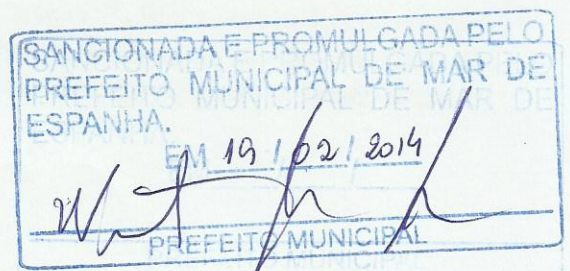 SANCIONADA E PROMULGADA PELO
PREFEITO MUNICIPAL DE MAR DE
ESPANHA.
EM 19 / 02 / 2014
PREFEITO MUNICIPAL